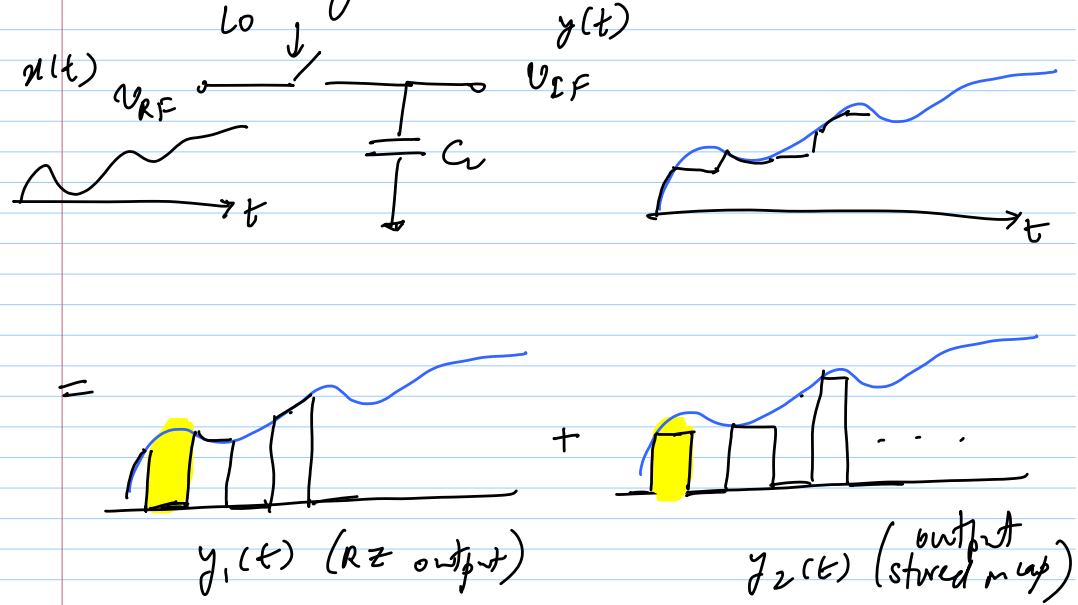 LO
y(t)
x(t)
V_RF
V_IF
C_L
t
t
=
+
. . . .
y_1(t) (RZ output)
y_2(t) (output
stored in cap)